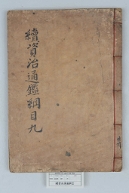 續資治通鑑綱目九